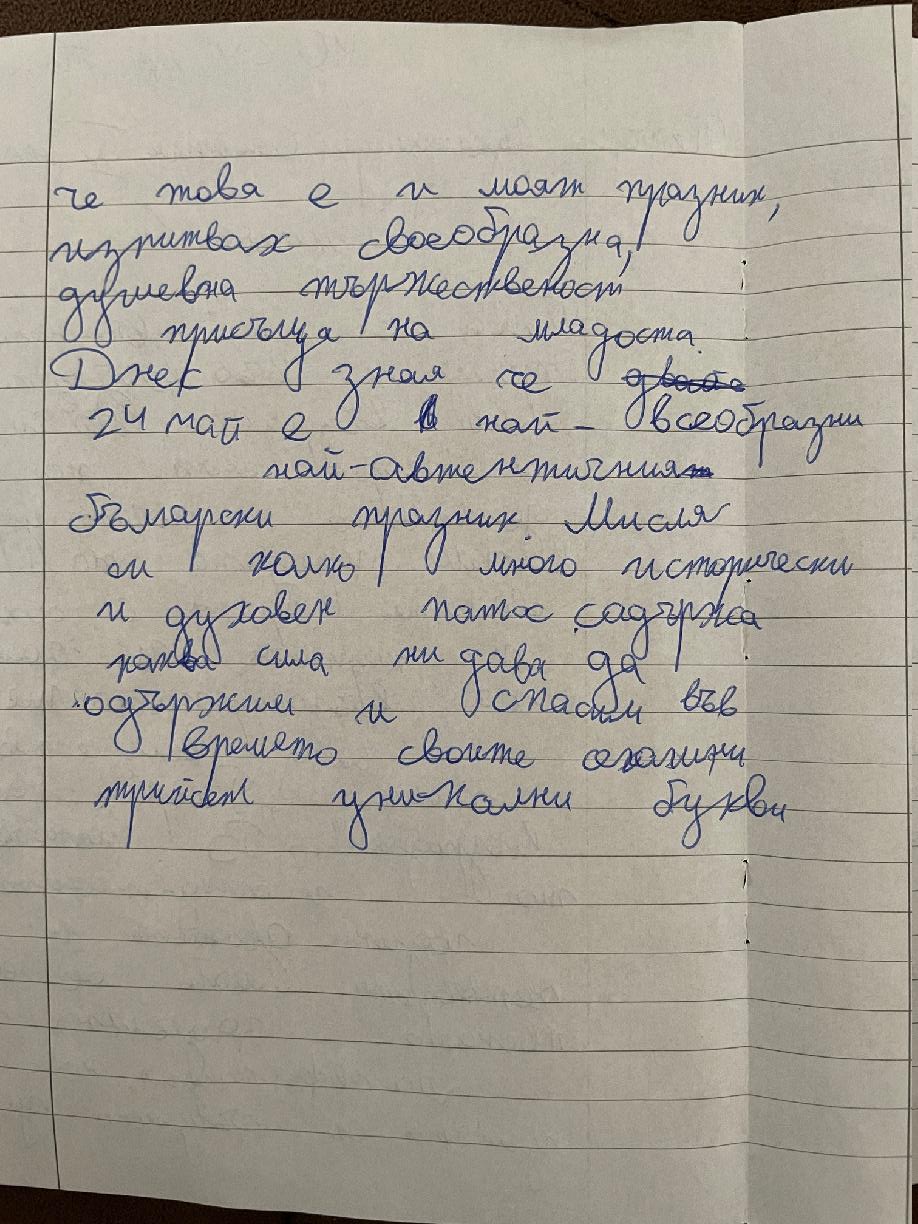 че това е и моят празник,
изпитвах своеобразна,
душевна тържественост
присъща на младоста.
Днес зная че
24 май е най-всеобразни
най-автентичния
български празник. Мисля
си колко много исторически
и духовен патос садържа
каква сила ни дава да
одържим и спасим във
времето своите
трийсет уникални букви